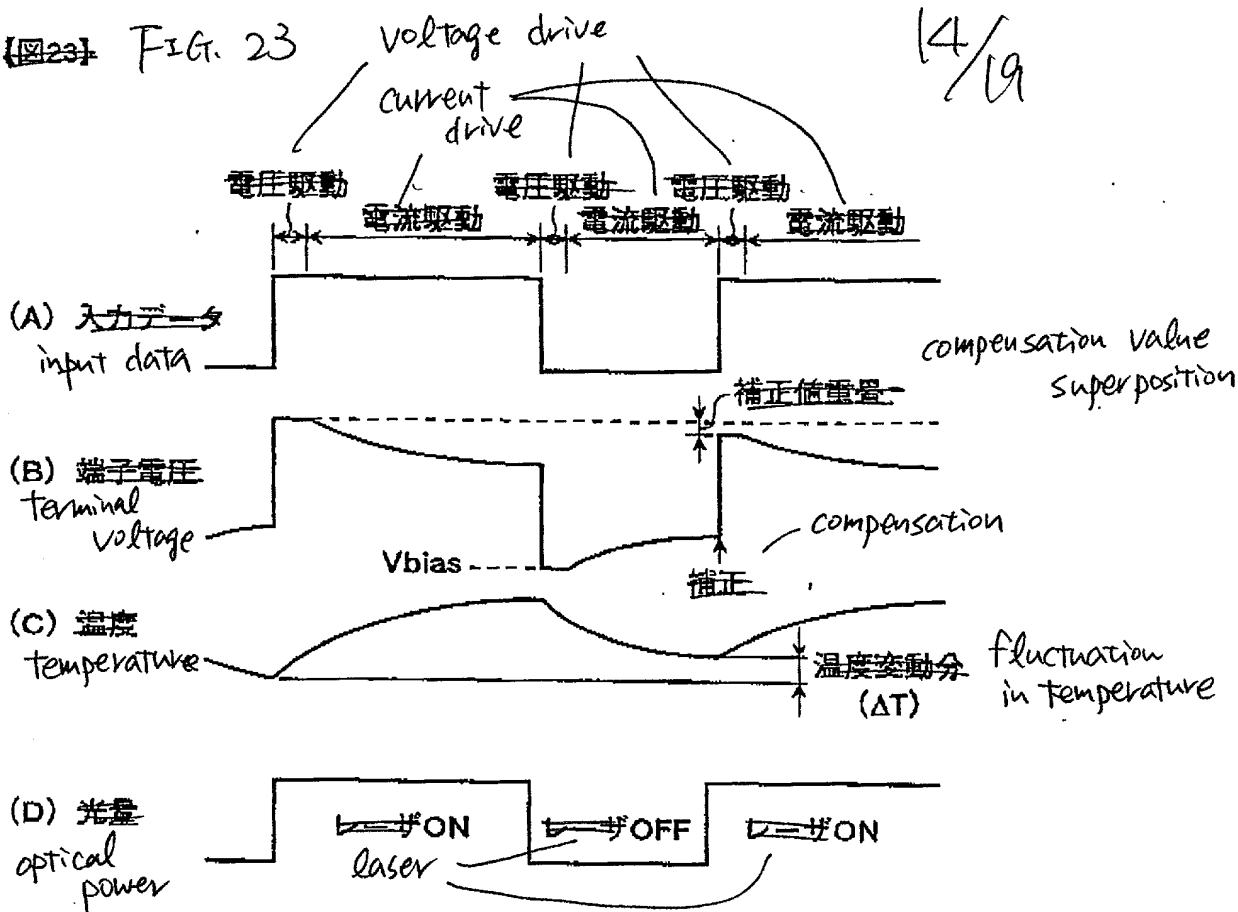 【図23】 FIG. 23
14/19
voltage drive
current
drive
電圧駆動 電圧駆動 電圧駆動
電流駆動 電流駆動 電流駆動
(A) 入力データ
input data
compensation value
superposition
補正値重畳
(B) 端子電圧
terminal
voltage
compensation
Vbias
補正
(C) 温度
temperature
温度変動分
(ΔT)
fluctuation
in temperature
(D) 光量
optical
power
レーザON レーザOFF レーザON
laser